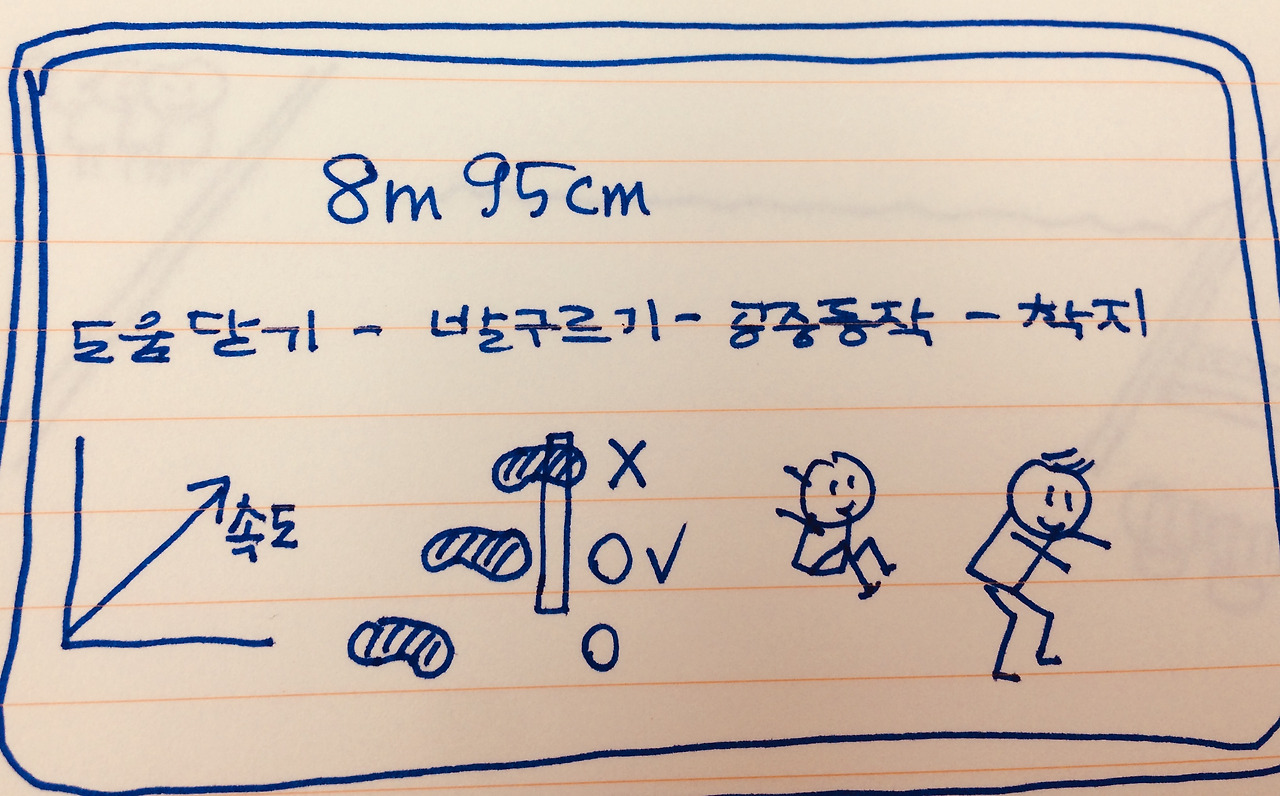 8m 95cm
도움닫기 - 발구르기 - 공중동작 - 착지
속도
X
O✓
O